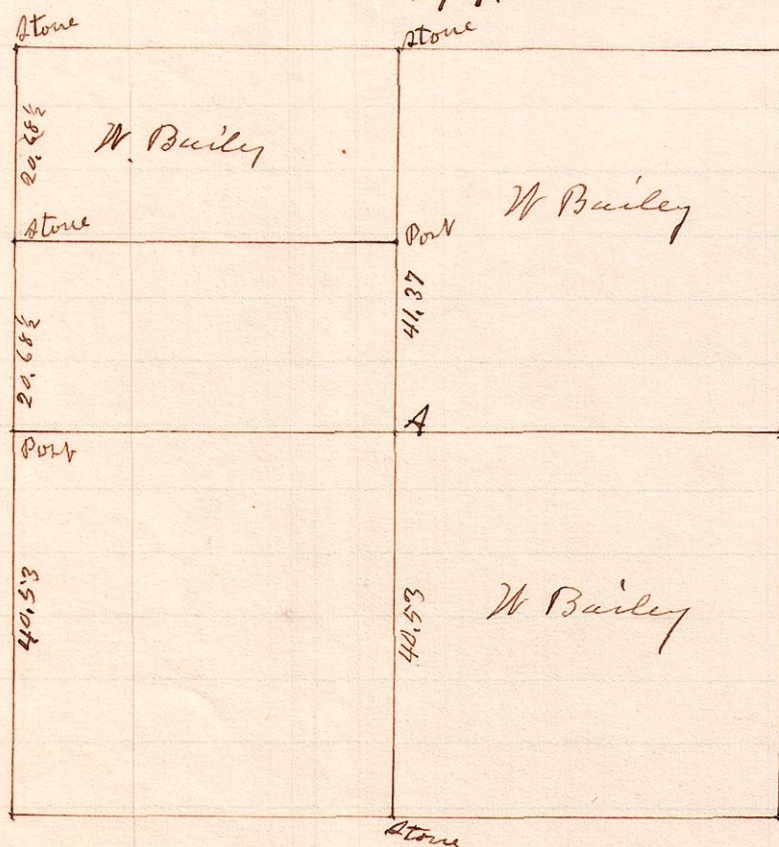 Stone
Stone
20.68½
W. Bailey
W Bailey
Stone
Post
41.37
20.68½
A
Post
40.53
40.53
W Bailey
Stone